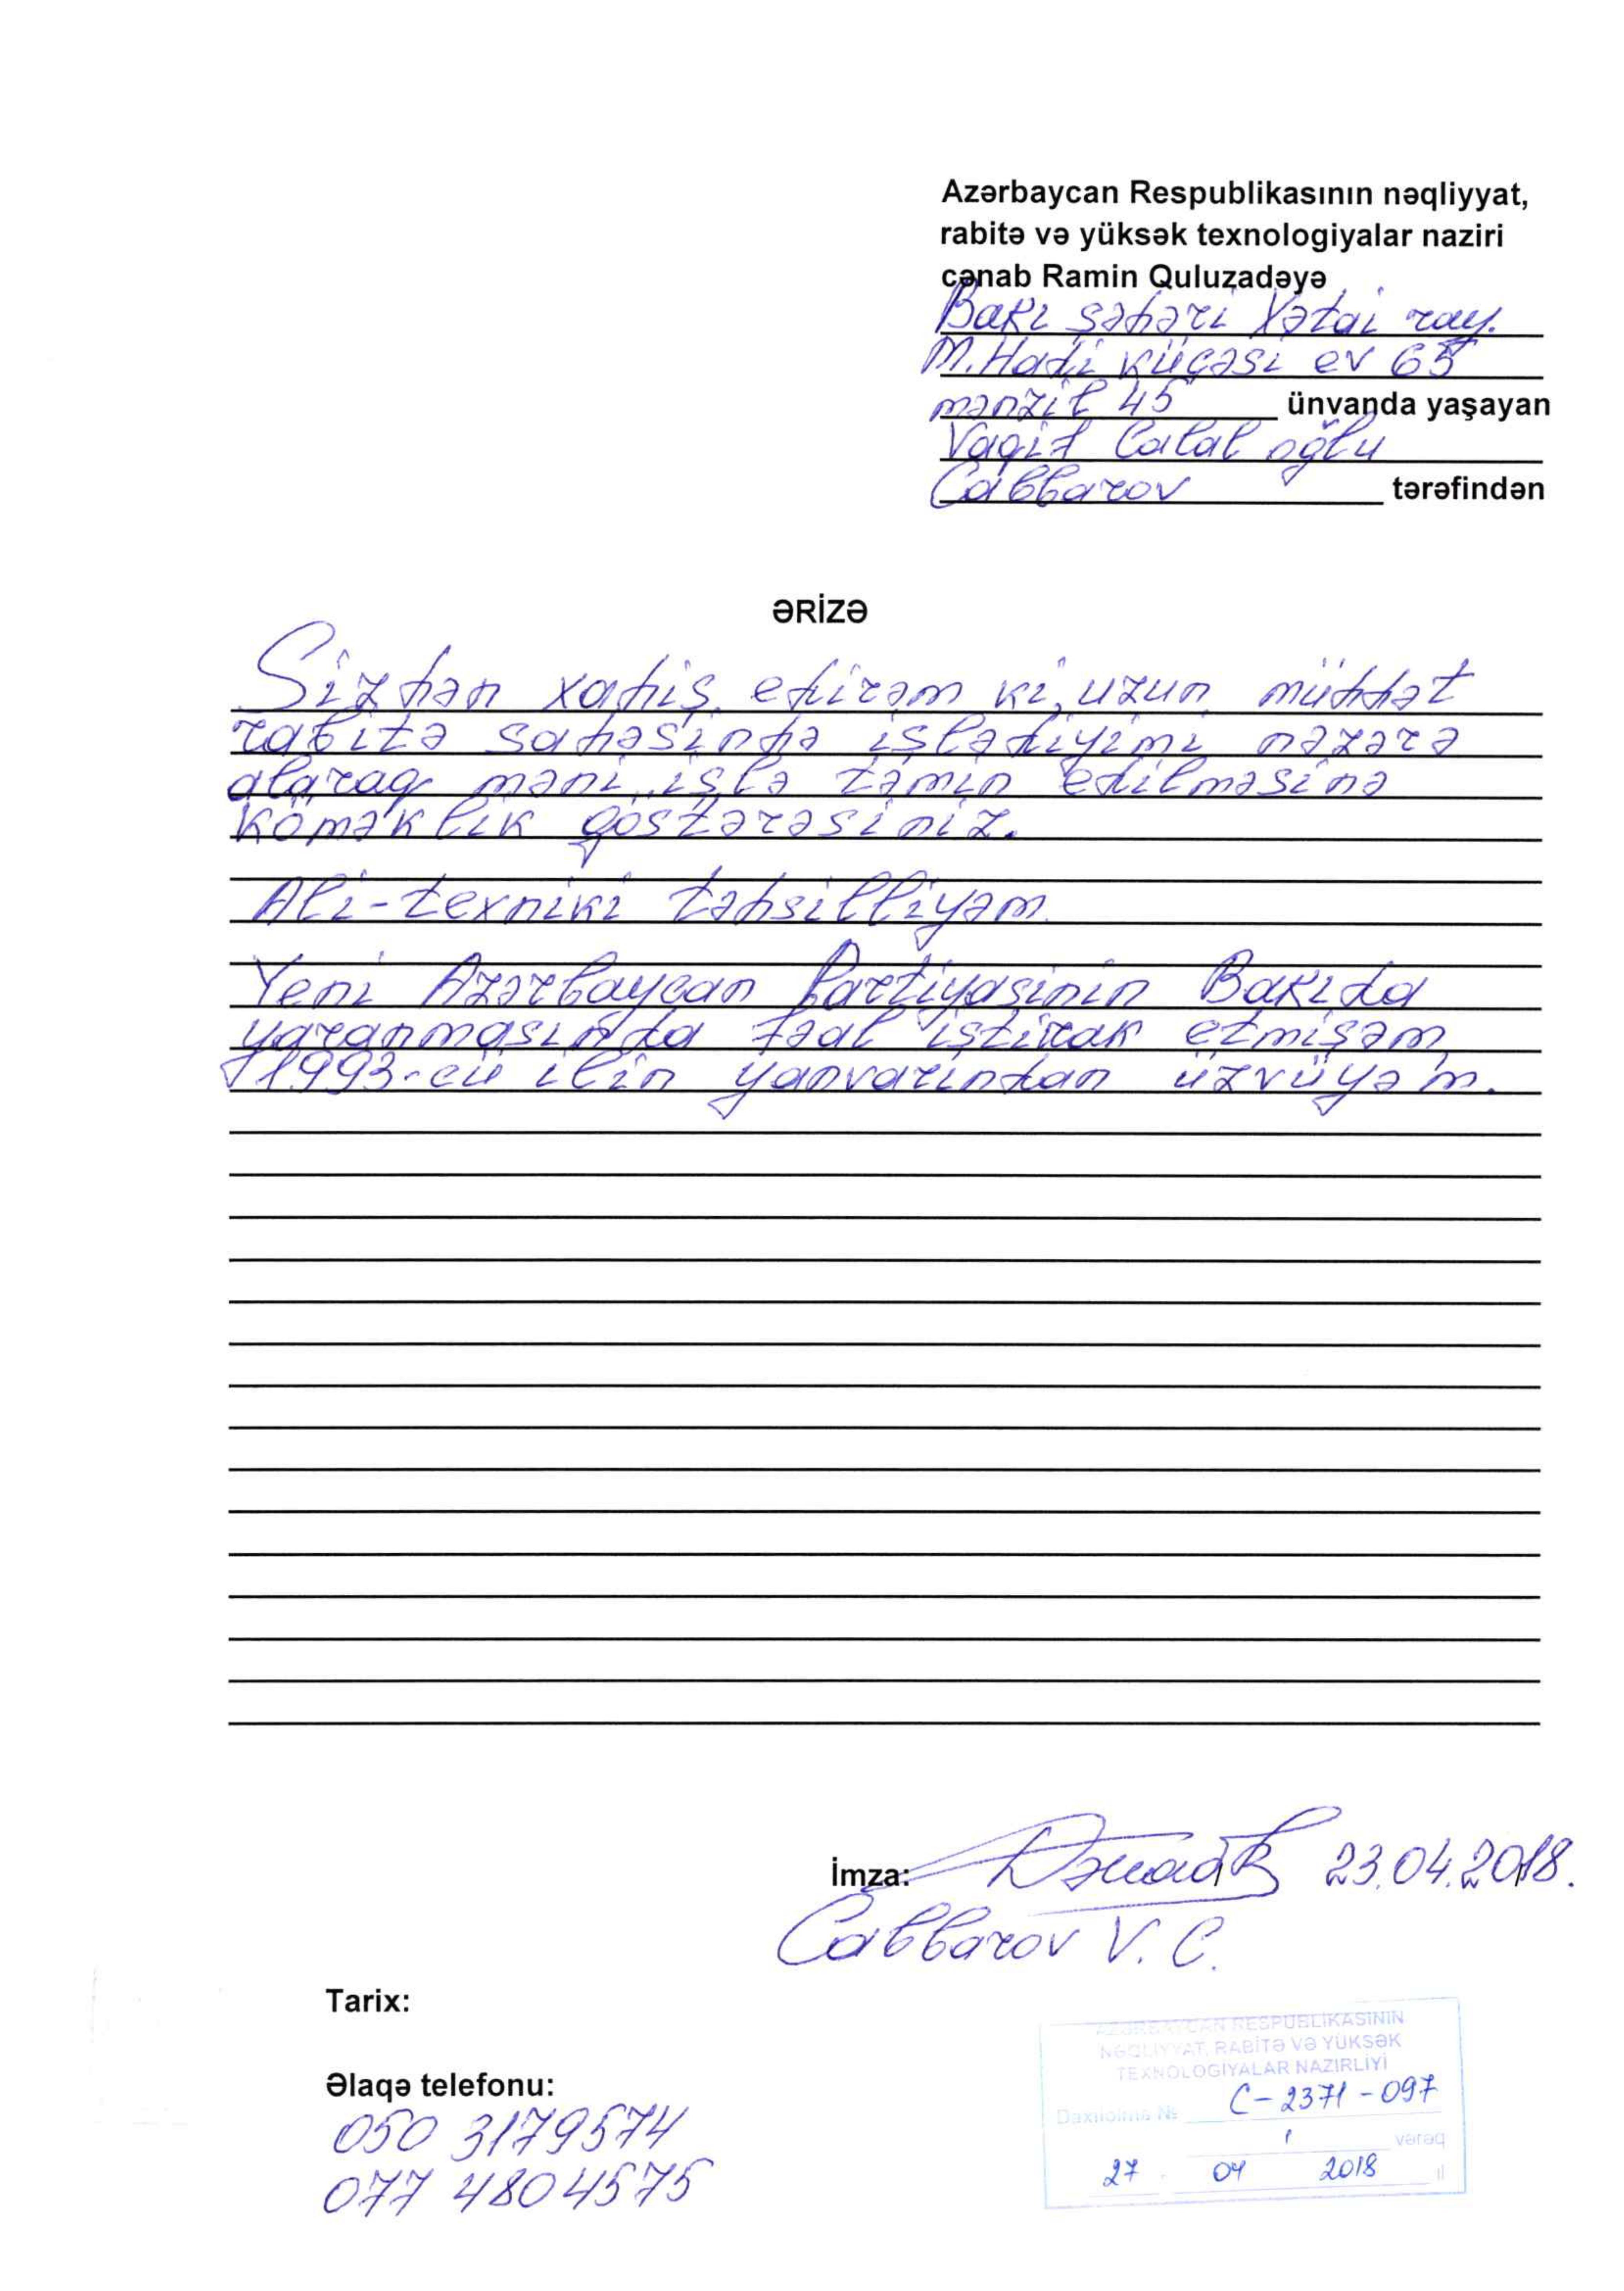 Azərbaycan Respublikasının nəqliyyat,
rabitə və yüksək texnologiyalar naziri
cənab Ramin Quluzadəyə
Bakı şəhəri Xətai ray.
M.Hadi küçəsi ev 65
mənzil 45 ünvanda yaşayan
Vaqif Calal oğlu
Cabbarov tərəfindən
ƏRİZƏ
Sizdən xahiş edirəm ki, uzun müddət
rabitə sahəsində işlədiyimi nəzərə
alaraq məni işlə təmin edilməsinə
köməklik göstərəsiniz.
Ali-texniki təhsilliyəm.
Yeni Azərbaycan Partiyasinin Bakıda
yaranmasında fəal iştirak etmişəm,
1993-cü ilin yanvarından üzvüyəm.
İmza: 23.04.2018.
Cabbarov V. C.
Tarix:
Əlaqə telefonu:
050 3179574
077 4804575
AZƏRBAYCAN RESPUBLİKASININ
NƏQLİYYAT, RABİTƏ VƏ YÜKSƏK
TEXNOLOGİYALAR NAZİRLİYİ
Daxilolma № C-2371-097
1 vərəq
27 04 2018 il